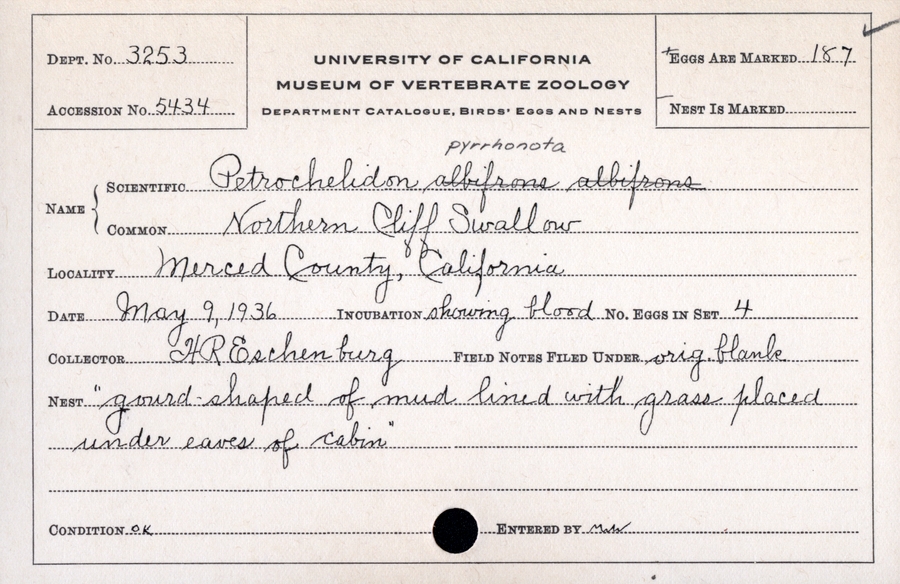 DEPT. NO. 3253
ACCESSION NO. 5434
UNIVERSITY OF CALIFORNIA
MUSEUM OF VERTEBRATE ZOOLOGY
DEPARTMENT CATALOGUE, BIRDS' EGGS AND NESTS
EGGS ARE MARKED 187
NEST IS MARKED
pyrrhonota
NAME
SCIENTIFIC Petrochelidon albifrons albifrons
COMMON Northern Cliff Swallow
LOCALITY Merced County, California
DATE May 9, 1936 INCUBATION showing blood NO. EGGS IN SET 4
COLLECTOR H R Eschenburg FIELD NOTES FILED UNDER orig. blank
NEST "gourd-shaped of mud lined with grass placed
under eaves of cabin"
CONDITION OK ENTERED BY